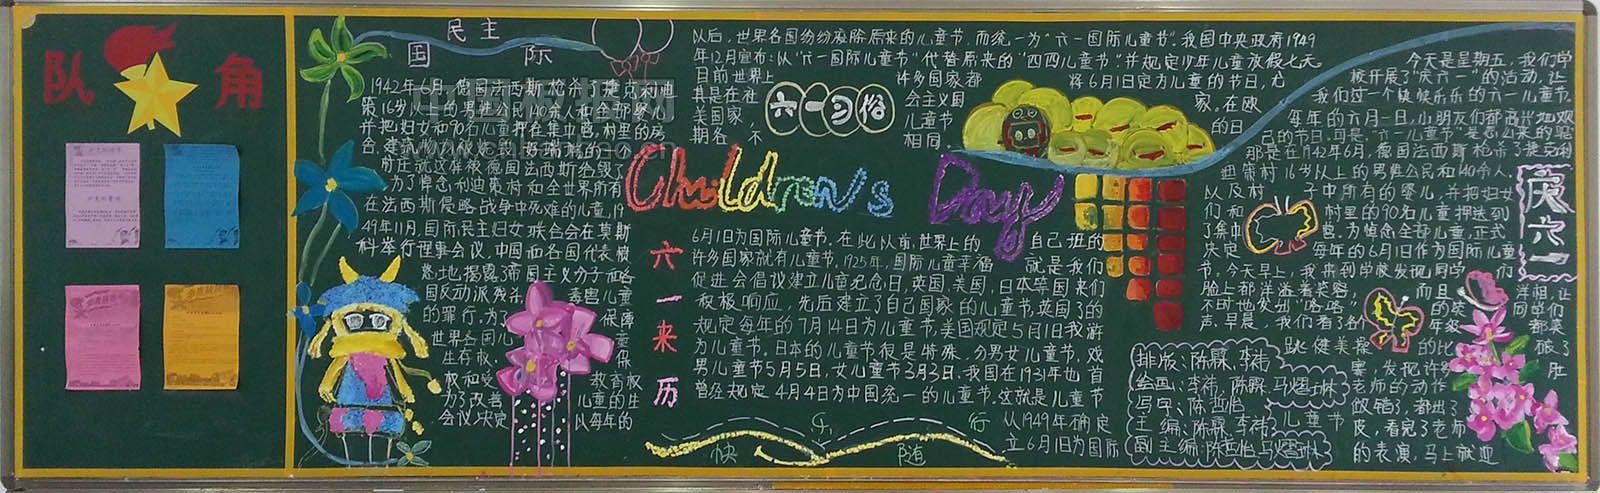 队角
民主
国际
1942年6月,德国法西斯枪杀了捷克利迪
策16岁以上的男性公民140余人和全部婴儿
并把妇女和90名儿童押往集中营,村里的房
舍、建筑物均被烧毁,好端端的一个
村庄就这样被德国法西斯给毁了
为了悼念利迪策村和全世界所有
在法西斯侵略战争中死难的儿童,19
49年11月,国际民主妇女联合会在莫斯
科举行理事会议,中国和各国代表愤
怒地揭露了帝国主义分子和各
国反动派残杀、毒害儿童
的罪行。为了保障
世界各国儿童
生存权、保
权和受教育权
为了改善儿童的生
会议决定以每年的
以后,世界各国纷纷废除原来的儿童节,而统一为“六一国际儿童节”。我国中央政府1949
年12月宣布:以“六一国际儿童节”代替原来的“四四儿童节”并规定少年儿童放假七天
目前世界上许多国家都将6月1日定为儿童的节日,尤
其是在社会主义国家。在欧
美国家,儿童节的日
期各不相同。
六一习俗
Children's Day
六一来历
6月1日为国际儿童节。在此以前,世界上的
许多国家就有儿童节,1925年,国际儿童幸福
促进会倡议建立儿童纪念日,英国、美国,日本等国
积极响应,先后建立了自己国家的儿童节英国
规定每年的7月14日为儿童节,美国规定5月1日
为儿童节。日本的儿童节很是特殊,分男女儿童节,
男儿童节5月5日,女儿童节3月3日。我国在1931年也
曾经规定4月4日为中国统一的儿童节。这就是儿童节
从1949年确定
立6月1日为国际
儿童节
快乐
随行
今天是星期五,我们学
校开展了“庆六一”的活动,让
我们过一个快快乐乐的六一儿童节。
每年的六月一日,小朋友们都高兴地欢
己的节日,可是“六一儿童节”是怎么来的呢
那是在1942年6月,德国法西斯枪杀了捷克利
迪策村16岁以上的男性公民和140余人,
以及村子中所有的婴儿,并把妇女
们和村里的90名儿童押送到
了集中营,为悼念全女儿童,正式
决定每年的6月1日作为国际儿童
节。今天早上,我来到学校发现同学们
脸上都洋溢着笑容,而且洋相,让
不时也发出“咯咯”的笑同学们
声,早晨,我们看了各个年级都
跳健美操的比
赛,发现许多
老师的动作
做错了,都出了
皮,看完了老师
的表演,马上就迎
自己班的
就是我们
来们
了的
我游
戏
首
庆六一
排版:陈霖、李祎
绘画:李祎、陈霖、马煜琳
写字:陈哲怡
主编:陈霖、李祎
副主编:陈哲怡、马煜琳